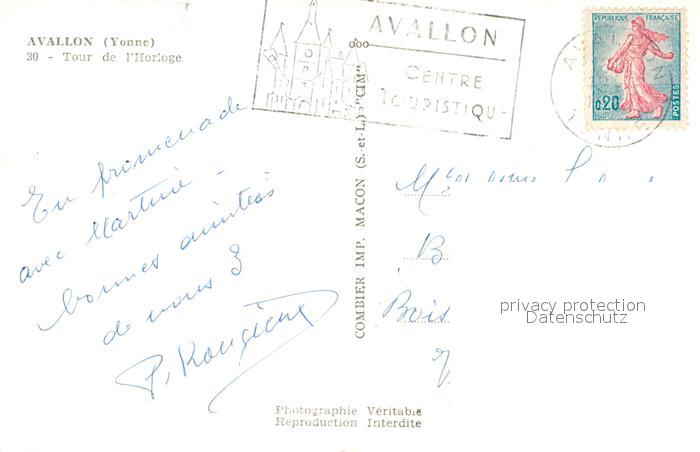 AVALLON (Yonne)
30 - Tour de l'Horloge
AVALLON
CENTRE
TOURISTIQU
REPUBLIQUE FRANÇAISE
0,20
POSTES
En promenade
avec Martine -
bonnes amitiés
de nous 3
COMBIER IMP. MACON (S.-et-L.) "CIM"
B
Bois
privacy protection
Datenschutz
Photographie Véritable
Reproduction Interdite